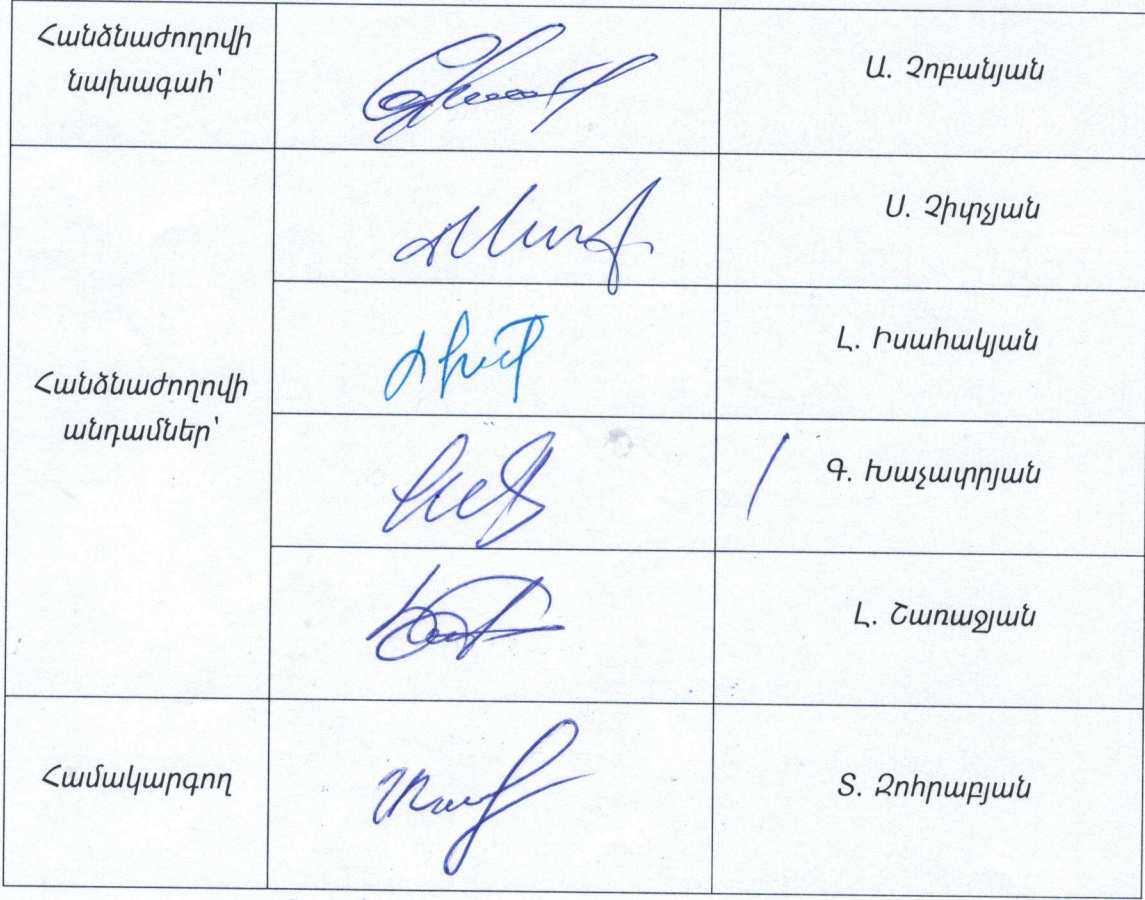 Հանձնաժողովի
նախագահ՝
Ա. Չոբանյան
Հանձնաժողովի
անդամներ՝
Ս. Չիփչյան
Լ. Իսահակյան
Գ. Խաչատրյան
Լ. Շառաջյան
Համակարգող
Տ. Զոհրաբյան